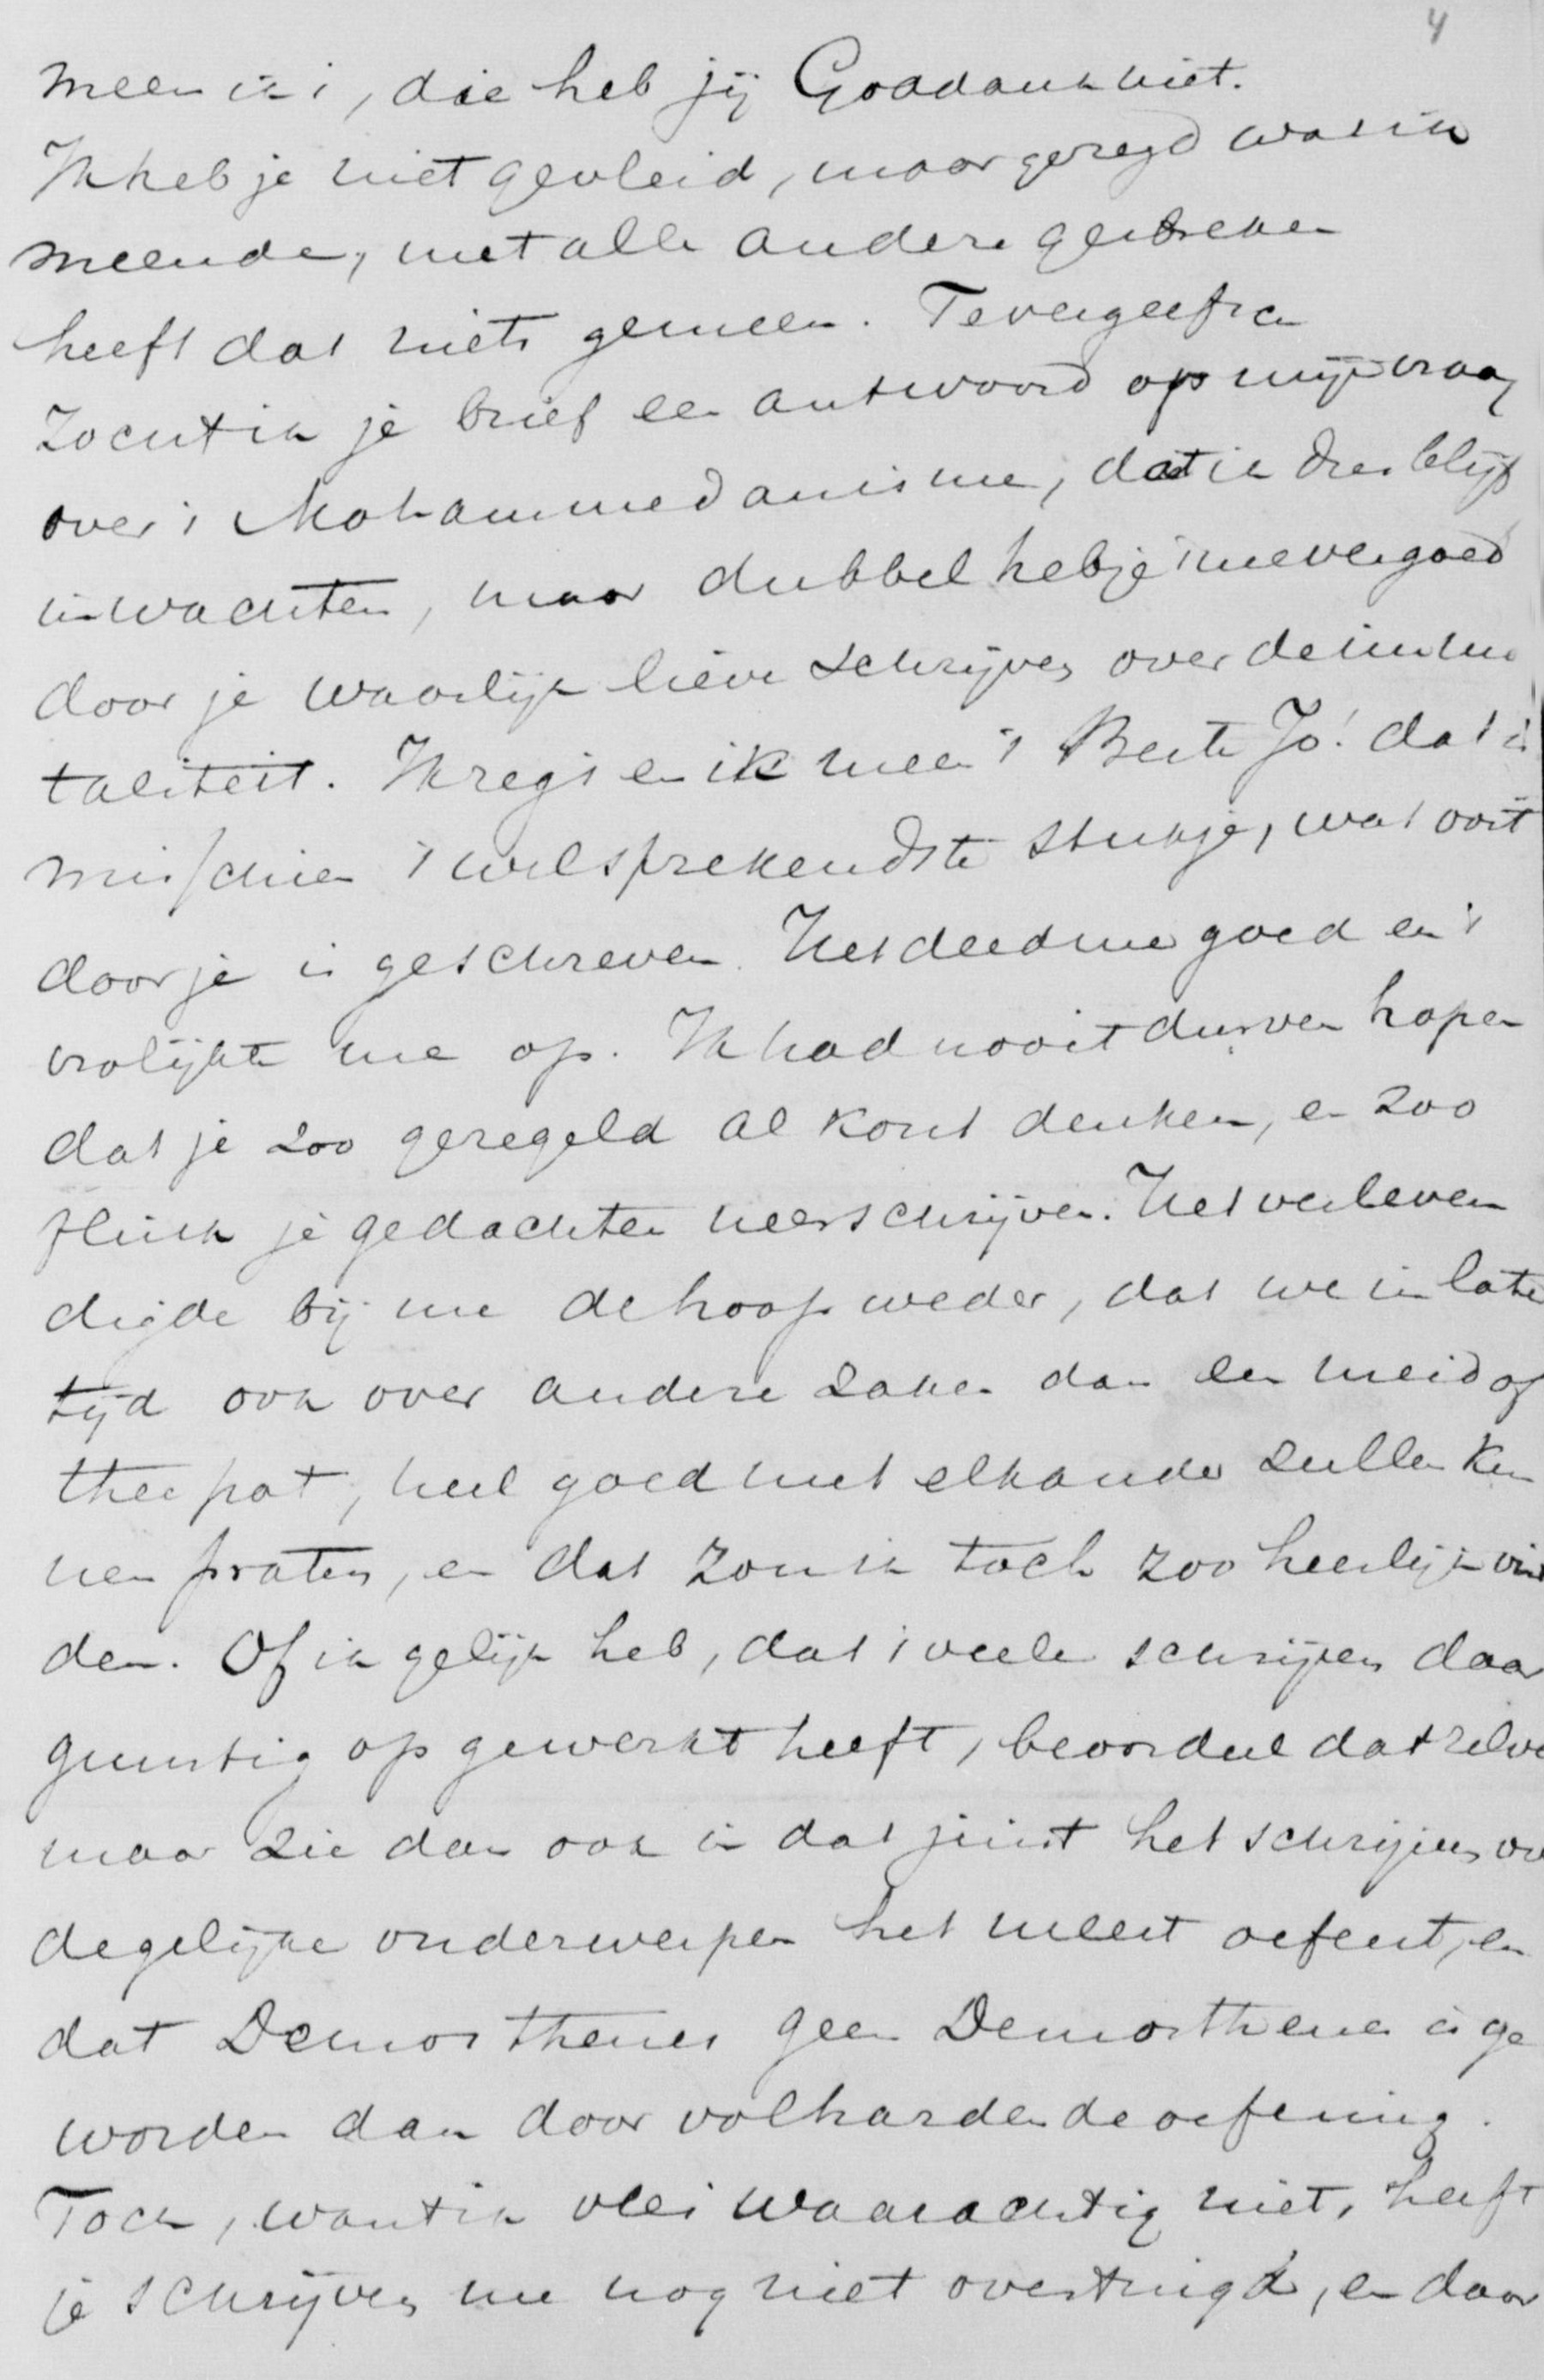 4
meen ik 't, die heb jij Goddank niet.
Ik heb je niet gevleid, maar gezegd wat ik
meende, met alle andere gebreken
heeft dat niets gemeen. Tevergeefs
zocht ik je brief een antwoord op mijn vraag
over 't Mohammedanisme, dat ik dus blijf
inwachten, maar dubbel heb je 't me vergoed
door je waarlijk lieve schrijven over de immor
taliteit. Ik zeg 't en ik meen 't Beste Jo! dat is
misschien 't welsprekendste stukje, wat ooit
door je is geschreven. Het deed me goed en 't
vrolijkte me op. Ik had nooit durven hopen
dat je zoo geregeld al kont denken, en zoo
flink je gedachten neerschrijven. Het verleven
digde bij me de hoop weder, dat we in later
tijd ook over andere zaken dan een meid of
theepot, heel goed met elkander zullen kun
nen praten, en dat zou ik toch zoo heerlijk vin
den. Of ik gelijk heb, dat 't vele schrijven daar
gunstig op gewerkt heeft, beoordeel dat zelve
maar zie dan ook in dat juist het schrijven over
degelijke onderwerpen het meest oefent, en
dat Demosthenes geen Demosthenes is ge
worden dan door volhardende oefening.
Toch, want ik vlei waarachtig niet, heeft
je schrijven me nog niet overtuigd, en daar